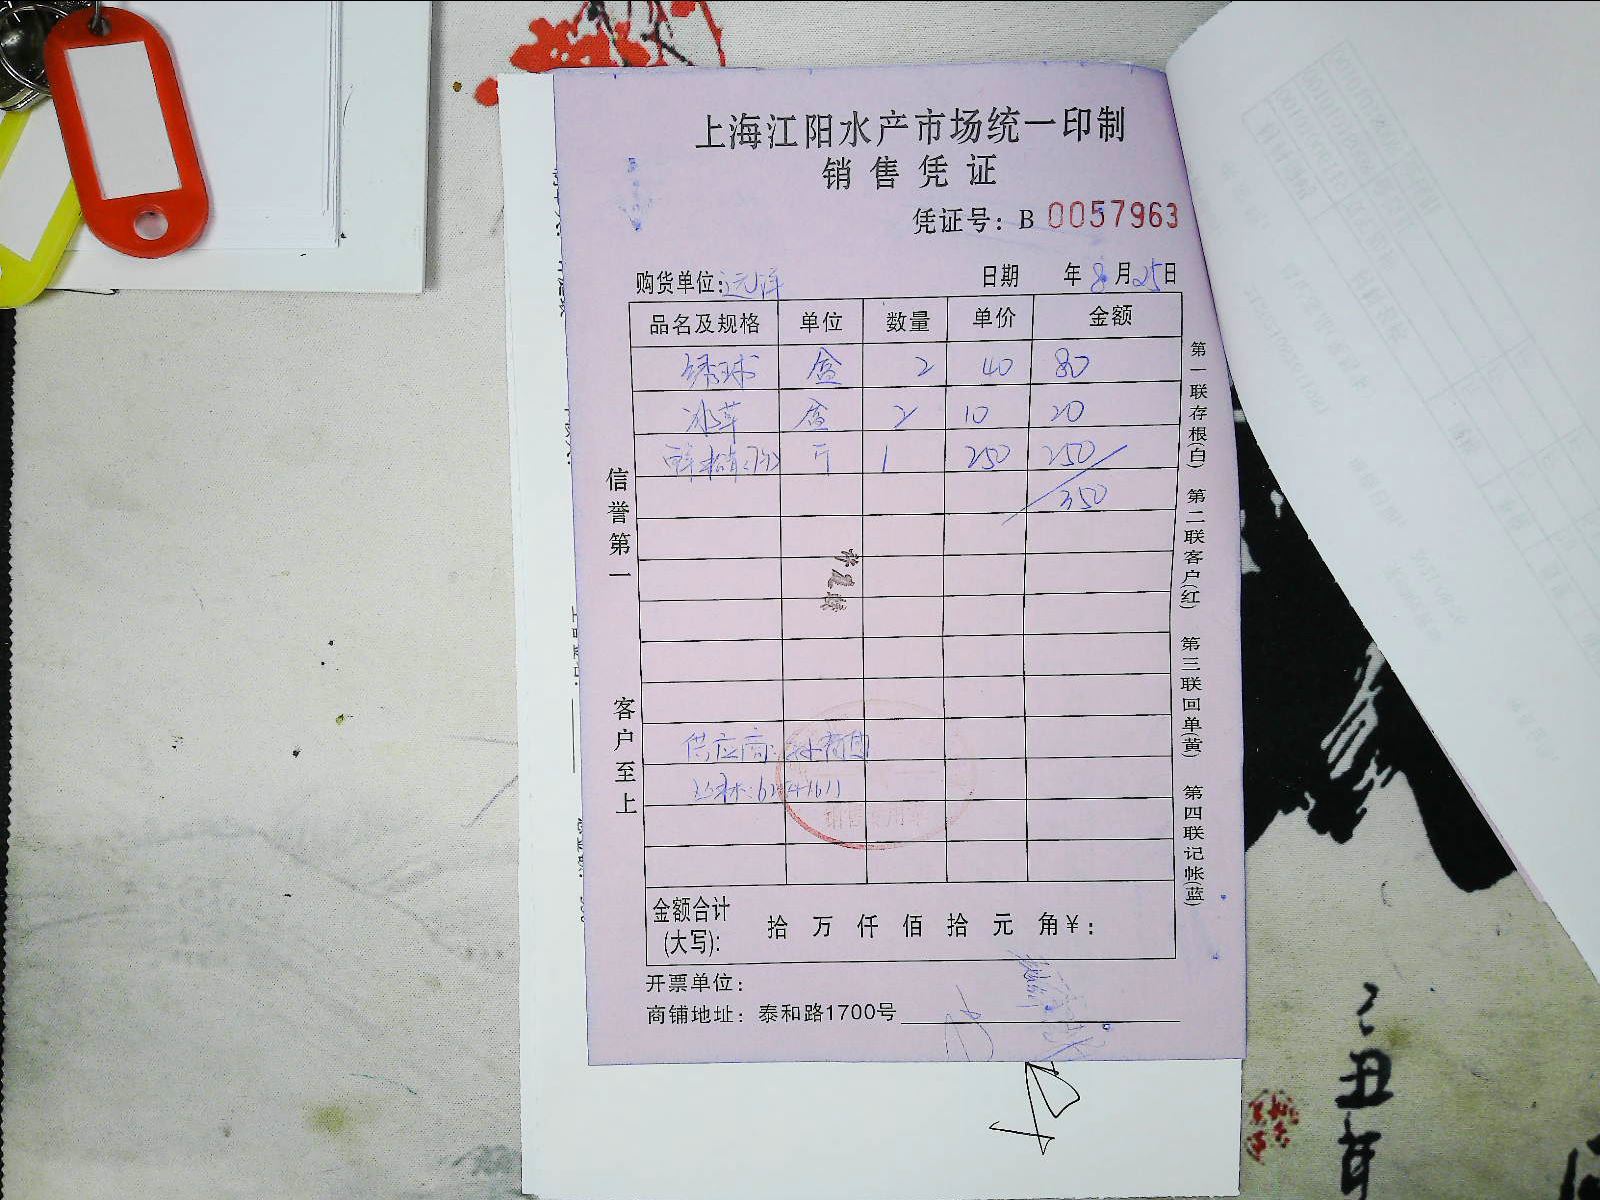 上海江阳水产市场统一印制
销售凭证
凭证号：B 0057963
购货单位:远洋 日期 年8月25日
品名及规格 单位 数量 单价 金额
绣球 盒 2 40 80
冰草 盒 2 10 20
斤 1 250 250
350
供应商:
金额合计(大写): 拾 万 仟 佰 拾 元 角 ¥：
开票单位：
商铺地址：泰和路1700号
信誉第一
客户至上
第一联存根(白) 第二联客户(红) 第三联回单(黄) 第四联记帐(蓝)
销售专用章
丑年